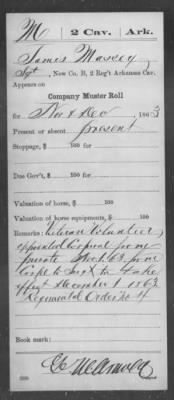 M | 2 Cav. | Ark.
James Massey
Sgt, New Co. B, 2 Reg't Arkansas Cav.
Appears on
Company Muster Roll
for Nov & Dec, 1863
Present or absent present
Stoppage, $ 100 for
Due Gov't, $ 100 for
Valuation of horse, $ 100
Valuation of horse equipments, $ 100
Remarks: Veteran Volunteer
appointed Corporal from
private Nov 63 from
Corpl to Sergt to take
effect December 1 1863
Regimental Order No 4
Book mark: